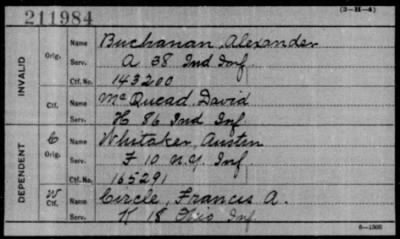 211984
(3-H-4)
INVALID
Orig.
Name Buchanan, Alexander
Serv. A 38 Ind Inf.
Ctf. No. 143200
Ctf.
Name McQuead, David
Serv. H 86 Ind Inf.
DEPENDENT
C
Orig.
Name Whitaker, Austin
Serv. F 10 N.Y. Inf.
Ctf. No. 165291
W
Ctf.
Name Circle, Francis A.
Serv. K 18 Ohio Inf.
6-1305